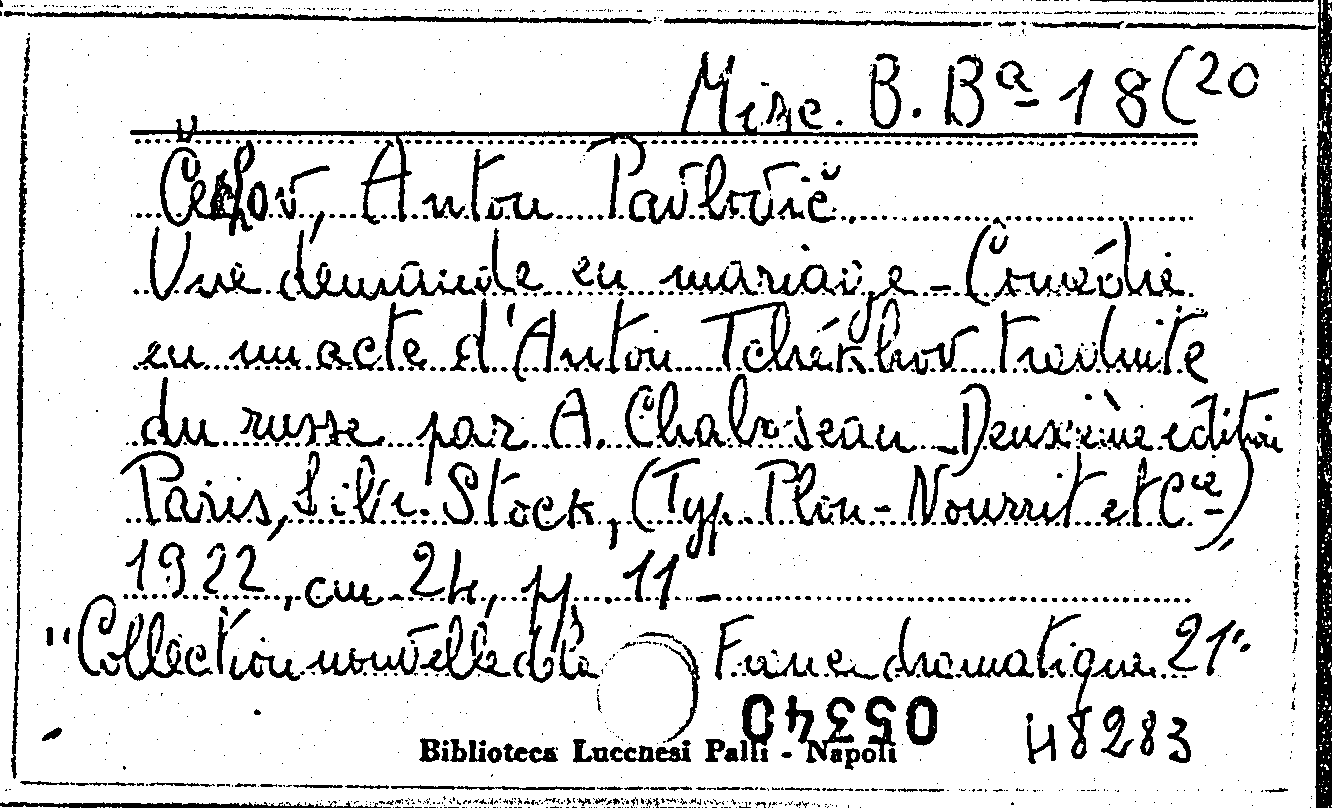 Misc. B. Bª 18(20
Čechov, Anton Pavlovič.
Une demande en mariage - Comédie
en un acte d'Anton Tchékhov traduite
du russe par A. Chaboseau - Deuxième édition
Paris, Libr. Stock, (Typ. Plon-Nourrit et Cie)
1922, cm. 24, pp. 11 -
"Collection nouvelle de la France dramatique 21".
05340
48283
Biblioteca Lucchesi Palli - Napoli